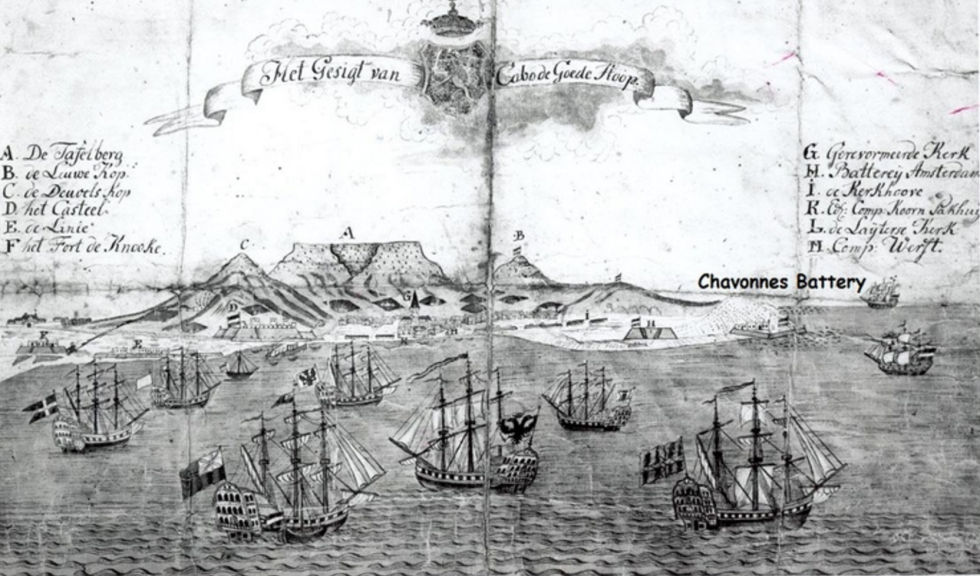 Het Gesigt van Cabo de Goede Hoop.
A. De Tafelberg
B. de Leuwe Kop.
C. de Deuvels Kop
D. het Casteel.
E. de Linie
F het Fort de Knocke.
G. Gerevormeerde Kerk
H. Batterey Amsterdam
I. de Kerkhoove
K. Comp: Koorn Pakhui
L. de Luyterse Kerk
M. Comp: Werft.
A
B
C
Chavonnes Battery
G
D
H
F
E